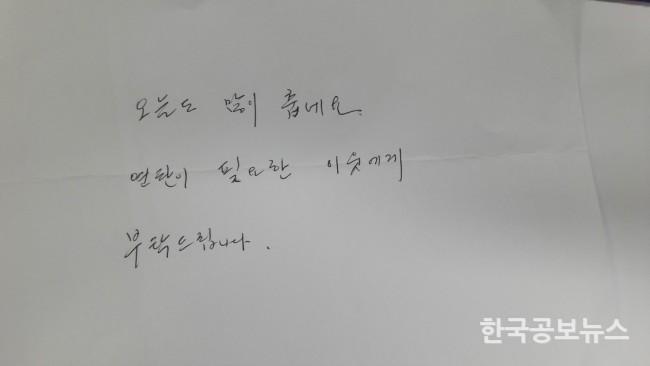 오늘도 많이 춥네요.
연탄이 필요한 이웃에게
부탁드립니다.
한국공보뉴스